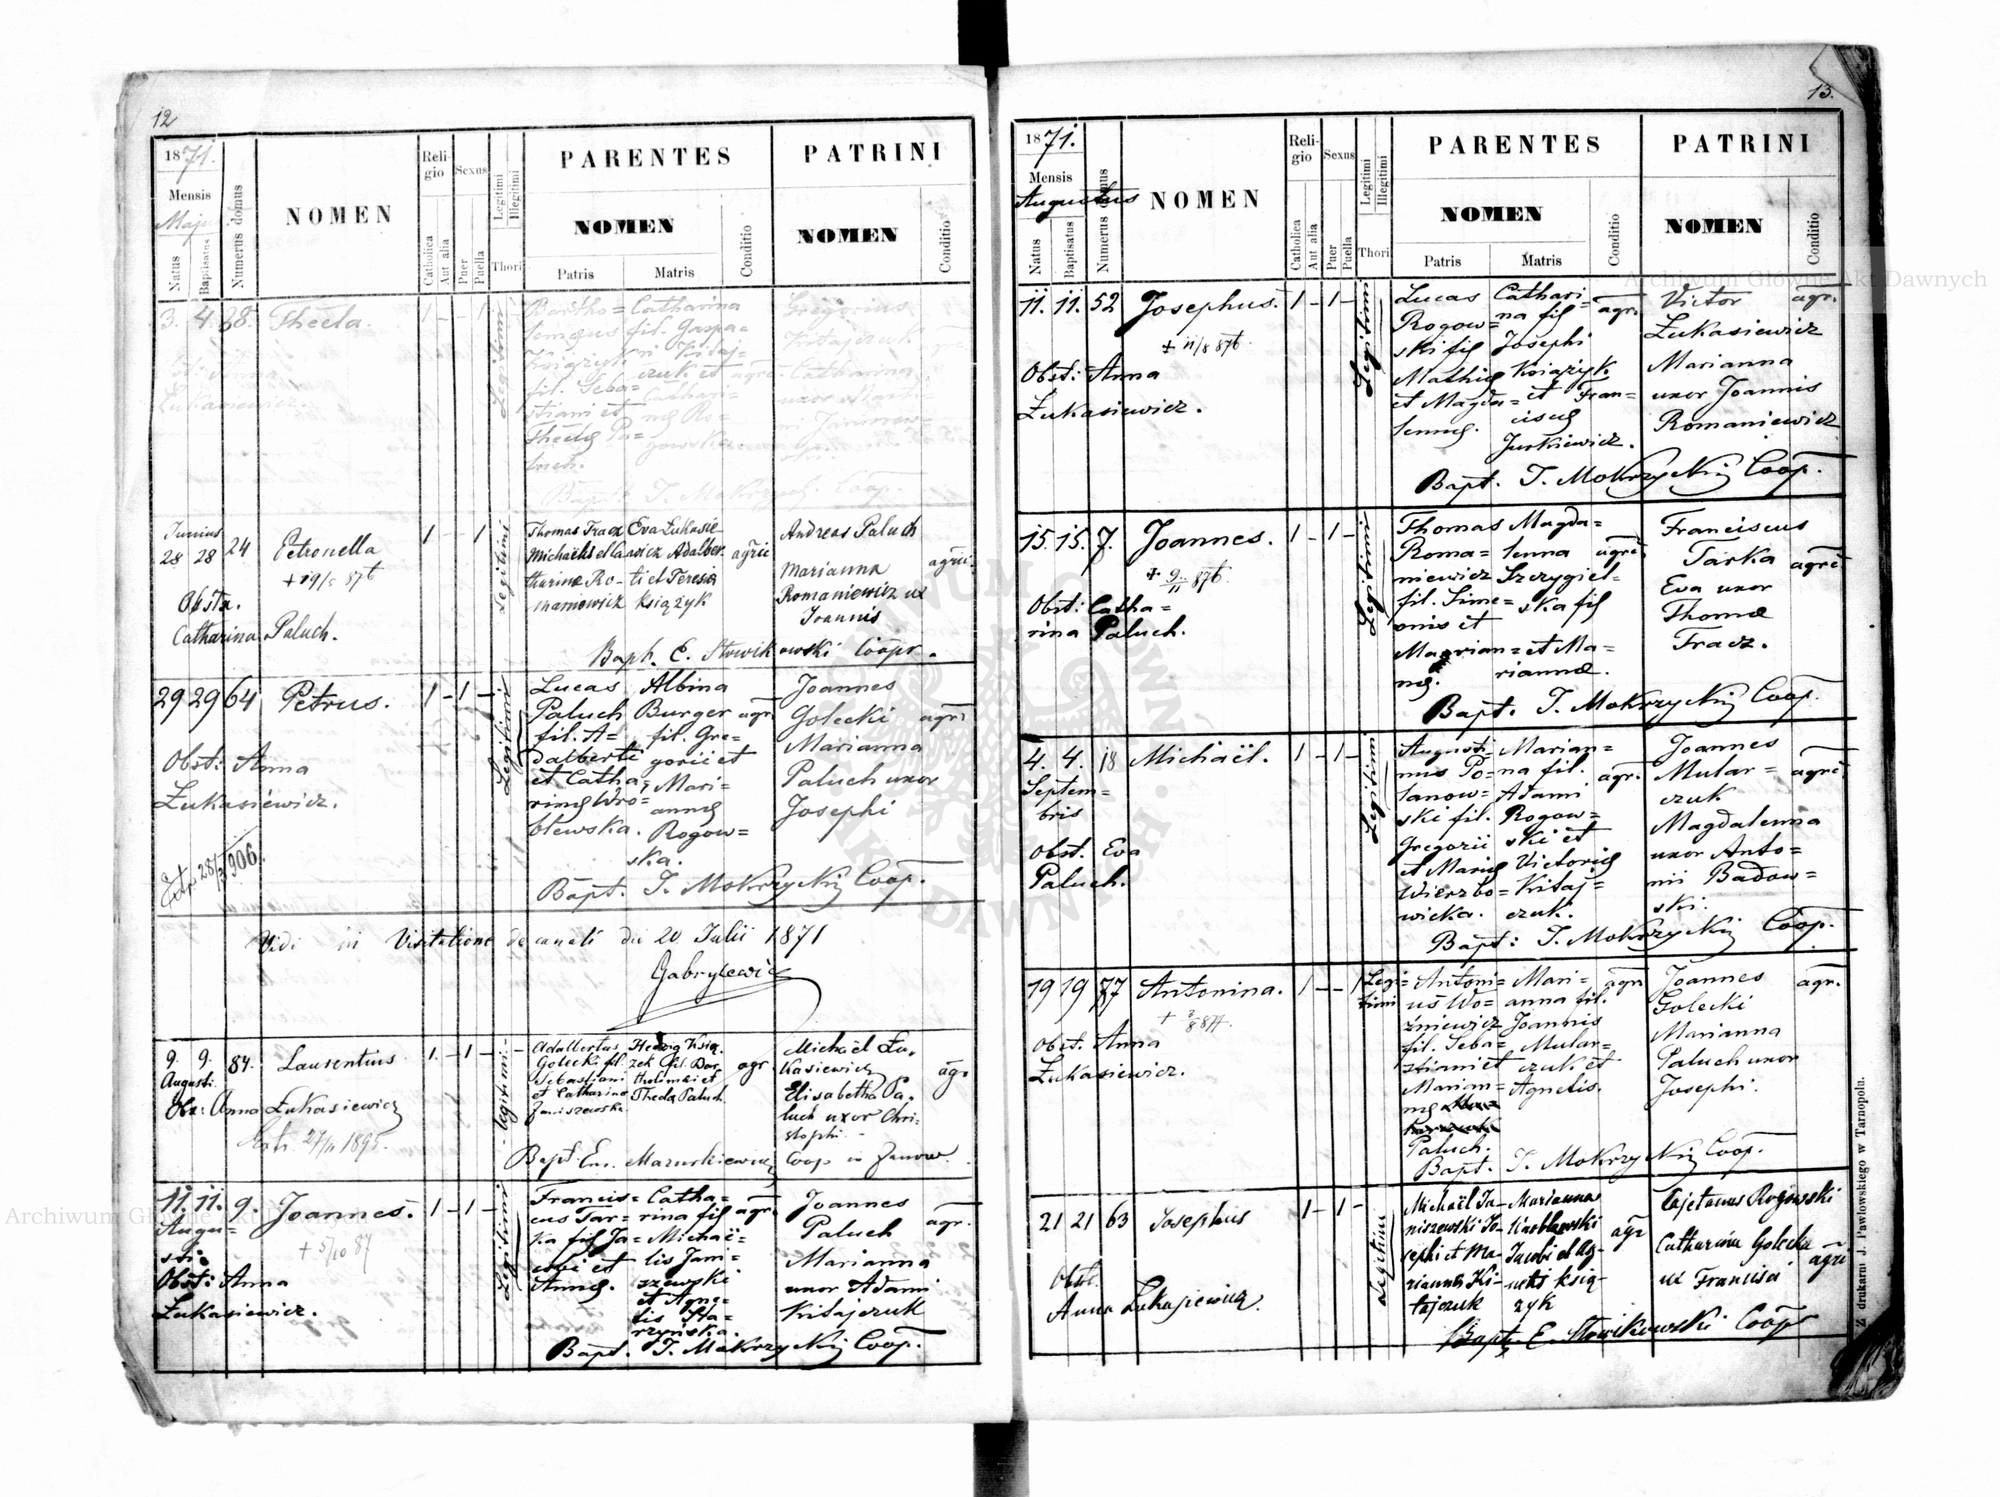 12
1871.
Mensis
Maji
Natus
Baptisatus
Numerus domus
NOMEN
Religio
Catholica
Aut alia
Sexus
Puer
Puella
Legitimi
Illegitimi
Thori
PARENTES
NOMEN
Patris
Matris
Conditio
PATRINI
NOMEN
Conditio
3. 4. 38. Thecla.
1 - - 1
Legitimi
Bartho=
lomæus
Książyk
fil. Seba=
stiani et
Theclæ Pa=
luch.
Catharina
fil. Gaspa=
ri Kitaj=
czuk et
Cathari=
næ Ro=
gowska.
agric.
Gregorius
Kitajczuk
Catharina
uxor
Obst: Anna
Łukasiewicz.
Bapt. T. Mokrzycki Coop.
Junius
28 28 24 Petronella
+ 19/5 876
Obstx.
Catharina Paluch.
1 - - 1
Legitimi
Thomas Fracz
Michaëlis et Ca
tharinæ Ro-
maniewicz
Eva Łukasie
wicz Adalber
ti et Teresia
Książyk
agric
Andreas Paluch
Marianna
Romaniewicz ux
Joannis
agric.
Baph. E. Słowikowski Coopr.
29 29 64 Petrus.
1 - 1 -
Legitimi
Lucas
Paluch
fil. A=
dalberti
et Catha=
rinæ Wró=
blewska.
Albina
Burger
fil. Gre=
gorii et
Mari=
annæ
Rogow=
ska.
agr.
Joannes
Golecki
Marianna
Paluch uxor
Josephi
agr.
Obst: Anna
Łukasiewicz.
Extr 28/3 906.
Bapt. T. Mokrzycki Coop.
Vidi in Visitatione decanati die 20 Julii 1871
Gabrylewicz
9. 9. 84. Laurentius
Augusti.
Obx: Anna Łukasiewicz
Extr. 27/11 1895.
1. - 1 -
legitimi.
Adalbertus
Golecki fil.
Sebastiani
et Catharinæ
Janiszewska
Hedvig Ksią
zek fil. Bar
tholomæi et
Thecla Paluch.
agr.
Michaël Łu-
kasiewicz
Elisabetha Pa-
luch uxor Chri-
stophi.
agr.
Bapt. Em. Mazurkiewicz Coop in Janow.
11. 11. 9. Joannes.
Augu=
sti
+ 5/10 87
Obst: Anna
Łukasiewicz.
1 - 1 -
Legitimi
Francis=
cus Tar=
ka fil Ja=
cobi et
Annæ.
Catha=
rina fil
Michaë=
lis Jani=
szewski
et Agne=
tis Sta=
rzyńska.
agr.
Joannes
Paluch
Marianna
uxor Adami
Kitajczuk
agr.
Bapt. T. Mokrzycki Coop.
13.
1871.
Mensis
Augustus
Natus
Baptisatus
Numerus domus
NOMEN
Religio
Catholica
Aut alia
Sexus
Puer
Puella
Legitimi
Illegitimi
Thori
PARENTES
NOMEN
Patris
Matris
Conditio
PATRINI
NOMEN
Conditio
11. 11. 52 Josephus.
+ 11/8 876.
Obst: Anna
Łukasiewicz.
1 - 1 -
Legitimi
Lucas
Rogow=
ski fil
Mathiæ
et Magda=
lennæ.
Cathari=
na fil
Josephi
Książyk
et Fran=
ciscæ
Jurkiewicz.
agr.
Victor
Łukasiewicz
Marianna
uxor Joannis
Romaniewicz
agr.
Bapt. T. Mokrzycki Coop.
15. 15. 7. Joannes.
+ 9/11 876.
Obst: Catha=
rina Paluch.
1 - 1 -
Legitimi
Thomas
Roma=
niewicz
fil. Sime=
onis et
Marian=
næ.
Magda=
lenna
Szczygiel=
ska fil
et Ma=
riannæ.
agric
Franciscus
Tarka
Eva uxor
Thomæ
Fracz.
agric
Bapt. T. Mokrzycki Coop.
4. 4. 18 Michaël.
Septem=
bris
Obst. Eva
Paluch.
1 - 1 -
Legitimi
Augusti=
nus Po=
lanow=
ski fil.
Gregorii
et Mariæ
Wierzbo=
wicka.
Marian=
na fil.
Adami
Rogow=
ski et
Victoriæ
Kitaj=
czuk.
agr.
Joannes
Mular=
czuk
Magdalenna
uxor Anto=
nii Badow=
ski.
agric
Bapt: T. Mokrzycki Coop.
19 19 77 Antonina.
+ 3/8 877.
Obst. Anna
Łukasiewicz.
1 - - 1
Legi=
timi
Antoni=
us Wo=
źniewicz
fil. Seba=
stiani et
Marian=
næ
Paluch.
Mari=
anna fil.
Joannis
Mular=
czuk et
Agnetis.
agr
Joannes
Golecki
Marianna
Paluch uxor
Josephi.
agr.
Bapt. T. Mokrzycki Coop.
21 21 63 Josephus
Obst.
Anna Łukasiewicz.
1 - 1 -
Legitimi
Michaël Ja-
niszewski Jo-
sephi et Ma-
riannæ Ki-
tajczuk
Marianna
Jacobi et Ag-
netis Ksią-
żyk
agr
Cajetanus Rogowski
Catharina Golecka
ux Francisci
agri
Bapt. E. Słowikowski Coop
Z drukarni J. Pawłowskiego w Tarnopolu.
Archiwum Główne Akt Dawnych
Archiwum Główne Akt Dawnych
ARCHIWUM GŁÓWNE AKT DAWNYCH